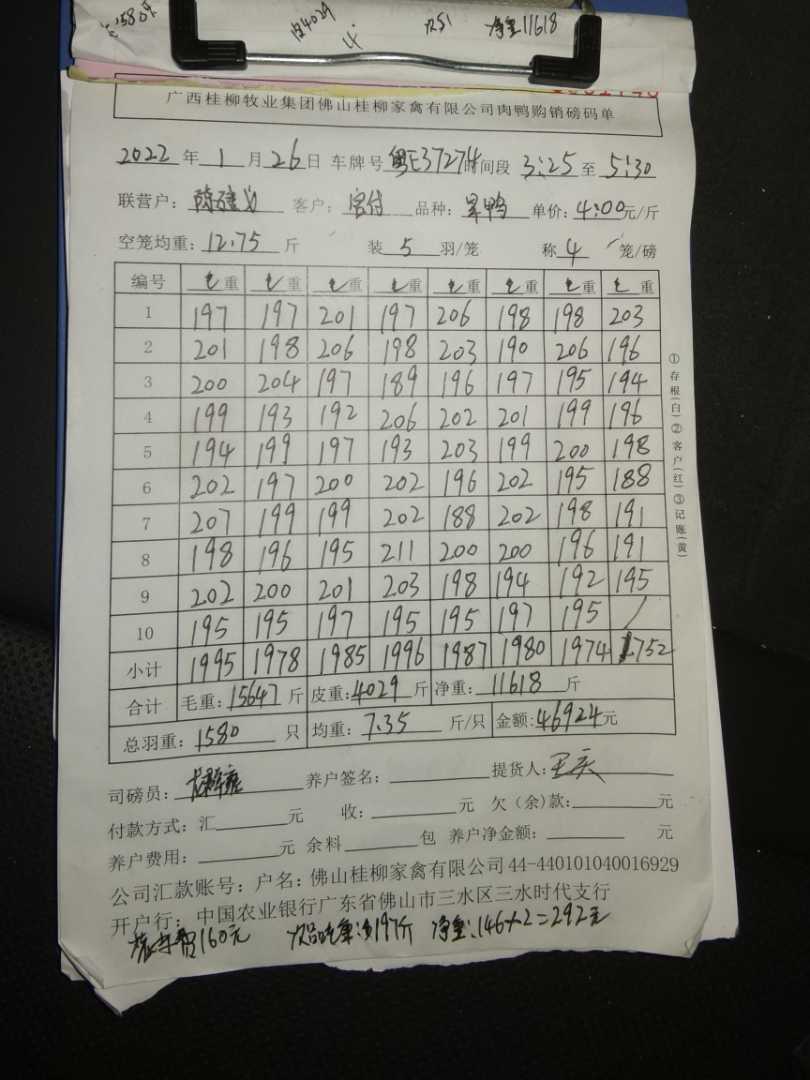 1580只 皮4029 次51 净重11618
4
广西桂柳牧业集团佛山桂柳家禽有限公司肉鸭购销磅码单
2022年1月26日 车牌号 粤E37274时间段 3:25至5:30
联营户: 客户: 品种: 单价:4.00元/斤
空笼均重:12.75斤 装5羽/笼 称4笼/磅
编号 毛重 毛重 毛重 毛重 毛重 毛重 毛重 毛重
1 197 197 201 197 206 198 198 203
2 201 198 206 198 203 190 206 196
3 200 204 197 189 196 197 195 194
4 199 193 192 206 202 201 199 196
5 194 199 197 193 203 199 200 198
6 202 197 200 202 196 202 195 188
7 207 199 199 202 188 202 198 191
8 198 196 195 211 200 200 196 191
9 202 200 201 203 198 194 192 195
10 195 195 197 195 195 197 195 /
小计 1995 1978 1985 1996 1987 1980 1974 1752
合计 毛重:15647斤 皮重:4029斤 净重:11618斤
总羽重:1580只 均重:7.35斤/只 金额:46924元
司磅员: 养户签名: 提货人:王庆
付款方式:汇 元 收: 元 欠(余)款: 元
养户费用: 元 余料 包 养户净金额: 元
公司汇款账号:户名:佛山桂柳家禽有限公司44-440101040016929
开户行:中国农业银行广东省佛山市三水区三水时代支行
费160元 次品毛重:197斤 净重:146×2=292元
①存根(白)②客户(红)③记账(黄)